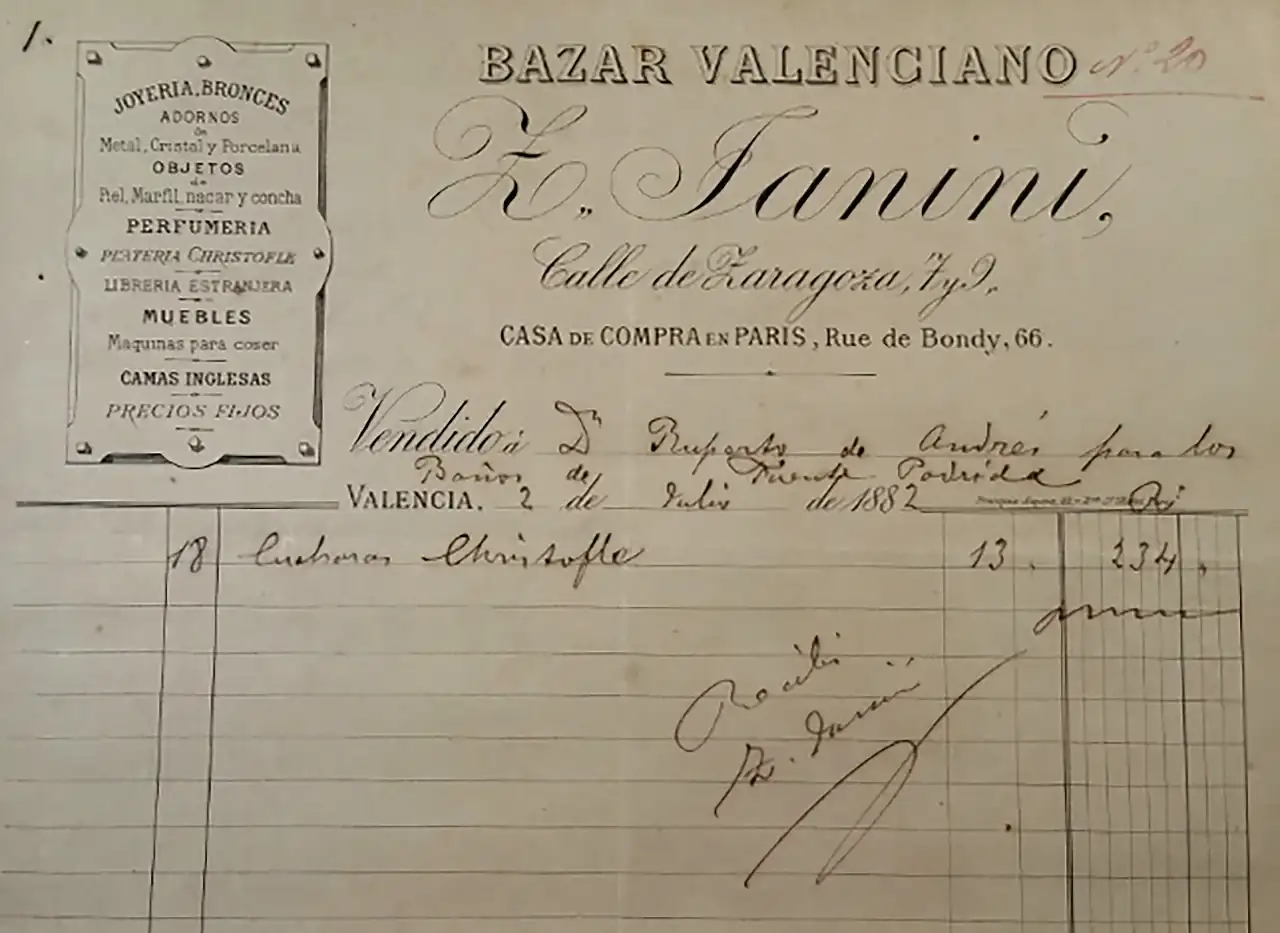 1.
JOYERIA, BRONCES
ADORNOS
de
Metal, Cristal y Porcelana
OBJETOS
de
Piel, Marfil, nacar y concha
PERFUMERIA
PLATERIA CHRISTOFLE
LIBRERIA ESTRANJERA
MUEBLES
Maquinas para coser
CAMAS INGLESAS
PRECIOS FIJOS
BAZAR VALENCIANO
Nº 20
Z. Janini,
Calle de Zaragoza, 7 y 9.
CASA DE COMPRA EN PARIS, Rue de Bondy, 66.
Vendido á Dn Ruperto de Andrés para los
Baños de Fuente Podrida
VALENCIA, 2 de Julio de 1882
18 Cucharas Christofle 13. 234,
Recibi
Z. Janini